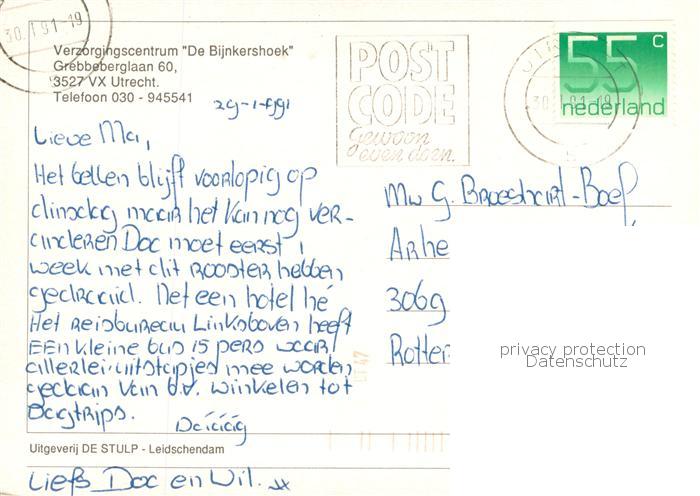 30.I.91-19
Verzorgingscentrum "De Bijnkershoek"
Grebbeberglaan 60,
3527 VX Utrecht.
Telefoon 030 - 945541
POST
CODE
Gewoon
even doen.
30.I.91-19
55 c
nederland
29-1-1991
Lieve Ma,
Het bellen blijft voorlopig op
dinsdag maar het kan nog ver-
anderen Doc moet eerst 1
week met dit rooster hebben
gedraaid. Net een hotel hé
Het reisbureau Linksboven heeft
EEN kleine bus 15 pers waar
allerlei uitstapjes mee worden
gedaan van b.v. winkelen tot
Dagtrips.
Dáíííág
Liefs Doc en Wil. xx
Uitgeverij DE STULP - Leidschendam
Mw G.
Arhe
3069
Rotter
privacy protection
Datenschutz